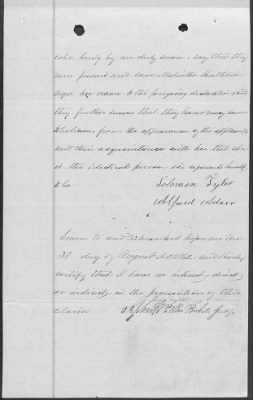 who being by me duly sworn, say that they
were present and saw
sign her name to the foregoing declaration and
they further swear that they have every reason
to believe from the appearance of the applicant
and their acquaintance with her that she
is the identical person she represents herself
to be
Solomon Tyler
Alfred
Sworn to and subscribed before me this
day of August A.D. and I hereby
certify that I have no interest, direct
or indirect, in the prosecution of this
claim
Probate Judge